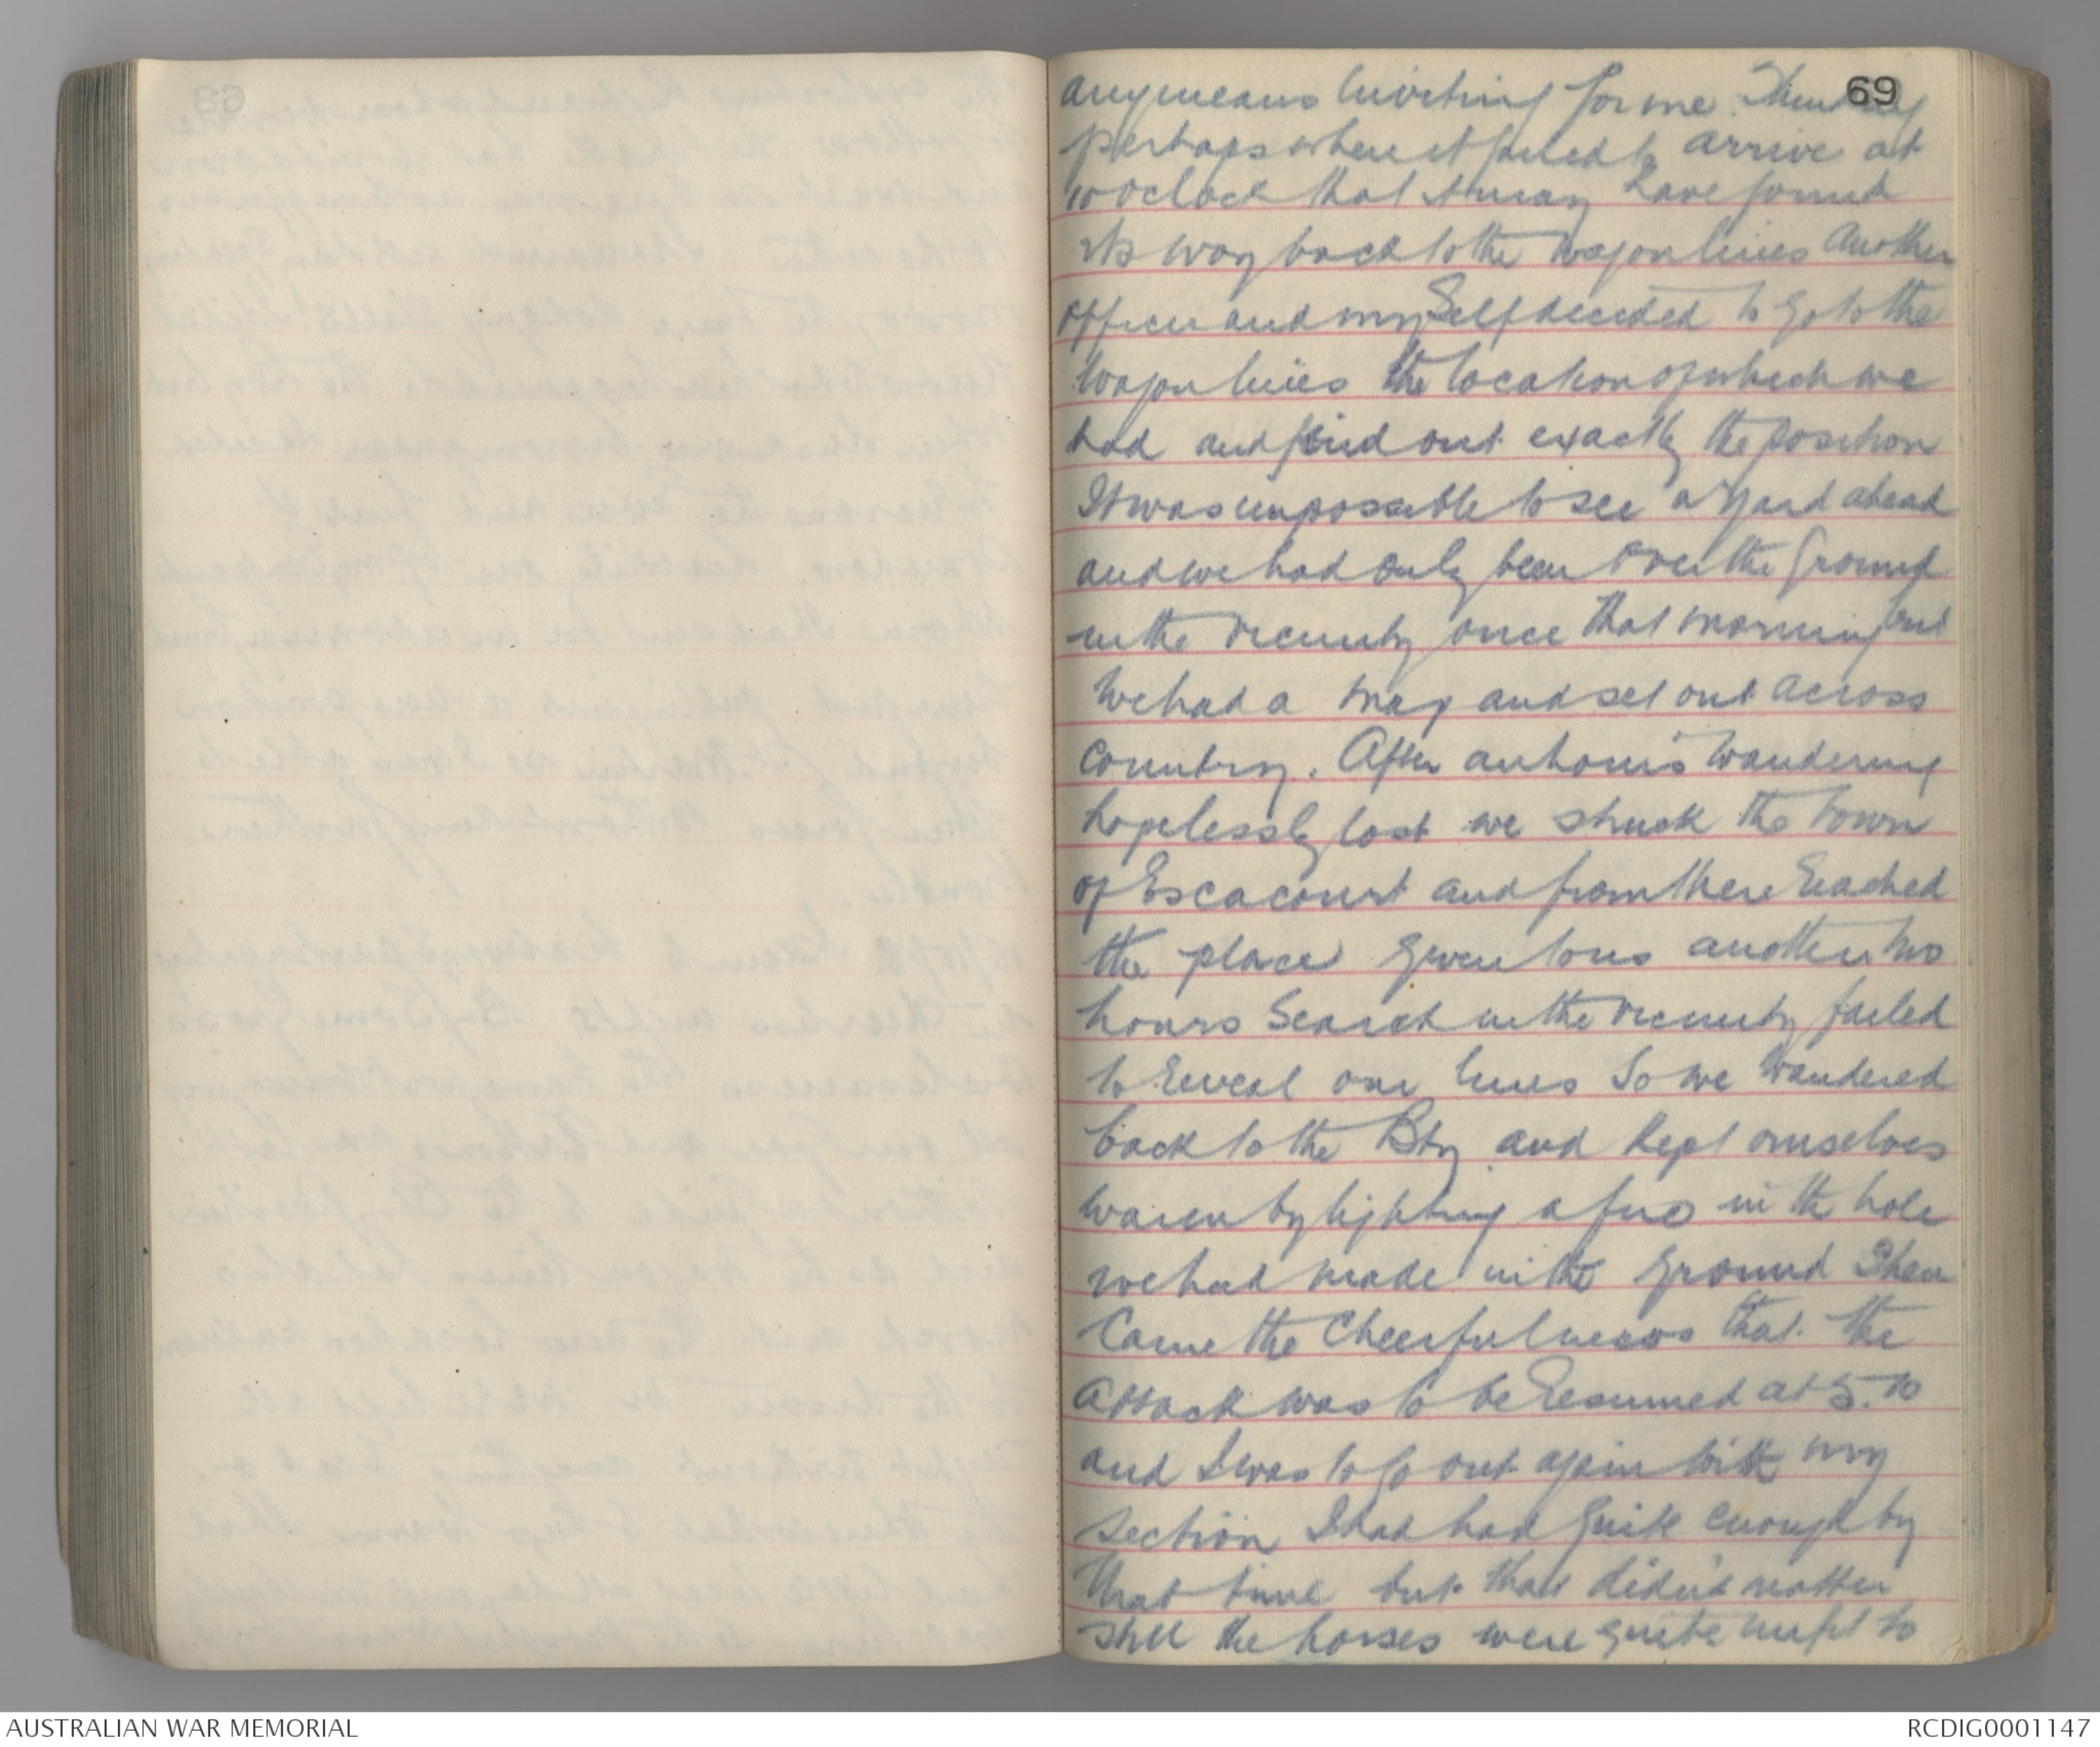 69
any means inviting for me. Thinking
perhaps when it failed to arrive at
10 oclock that it may have found
its way back to the wagon lines Another
officer and myself decided to go to the
wagon lines the location of which we
had and find out exactly the position
It was impossible to see a yard ahead
and we had only been over the ground
in the vicinity once that morning but
we had a map and set out across
country. After an hours wandering
hopelessly lost we struck the town
of Escacourt and from there reached
the place given to us another two
hours search in the vicinity failed
to reveal our lines so we wandered
back to the Bty and kept ourselves
warm by lighting a fire in the hole
we had made in the ground Then
came the cheerful news that the
attack was to be resumed at 5.10
and I was to go out again with my
section I had had quite enough by
that time but that didn't matter
still the horses were quite unfit to
AUSTRALIAN WAR MEMORIAL
RCDIG0001147